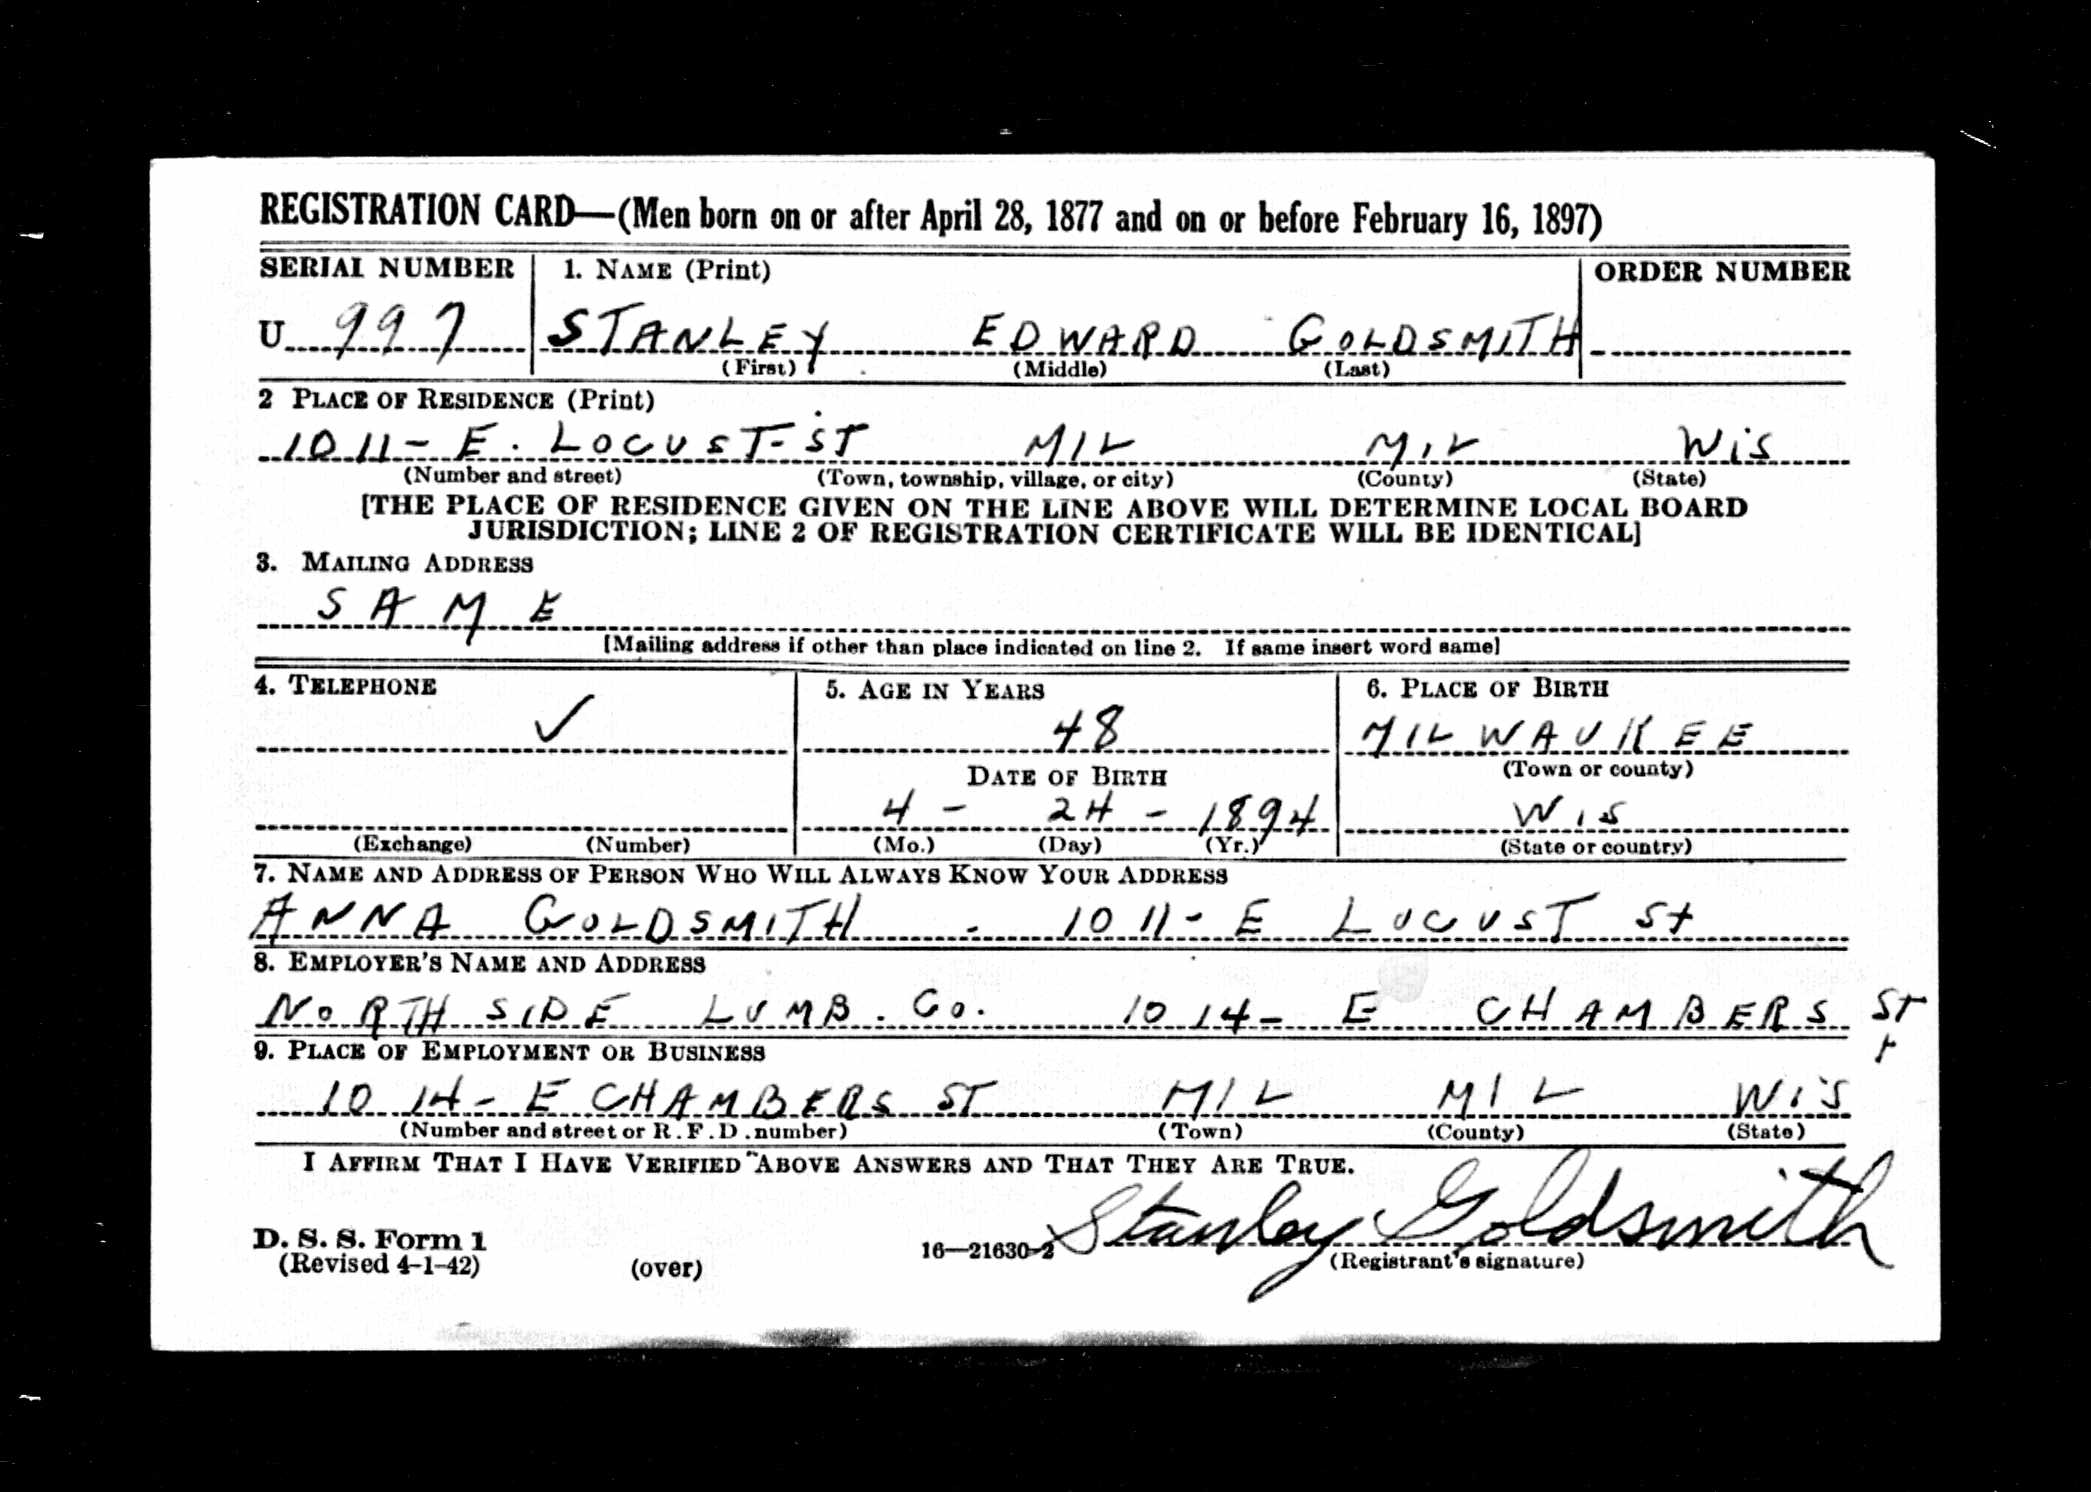 REGISTRATION CARD—(Men born on or after April 28, 1877 and on or before February 16, 1897)
SERIAL NUMBER 1. NAME (Print) ORDER NUMBER
U 997 STANLEY EDWARD GOLDSMITH
(First) (Middle) (Last)
2 PLACE OF RESIDENCE (Print)
1011- E. LOCUST- ST MIL MIL WiS
(Number and street) (Town, township, village, or city) (County) (State)
[THE PLACE OF RESIDENCE GIVEN ON THE LINE ABOVE WILL DETERMINE LOCAL BOARD
JURISDICTION; LINE 2 OF REGISTRATION CERTIFICATE WILL BE IDENTICAL]
3. MAILING ADDRESS
SAME
[Mailing address if other than place indicated on line 2. If same insert word same]
4. TELEPHONE 5. AGE IN YEARS 6. PLACE OF BIRTH
✓ 48 MILWAUKEE
DATE OF BIRTH (Town or county)
4 - 24 - 1894 WiS
(Exchange) (Number) (Mo.) (Day) (Yr.) (State or country)
7. NAME AND ADDRESS OF PERSON WHO WILL ALWAYS KNOW YOUR ADDRESS
ANNA GOLDSMITH - 1011- E LOCUST St
8. EMPLOYER'S NAME AND ADDRESS
NORTH SIDE LUMB. Co. 1014- E CHAMBERS ST
9. PLACE OF EMPLOYMENT OR BUSINESS
1014- E CHAMBERS ST MIL MIL WiS
(Number and street or R. F. D. number) (Town) (County) (State)
I AFFIRM THAT I HAVE VERIFIED ABOVE ANSWERS AND THAT THEY ARE TRUE.
Stanley Goldsmith
D. S. S. Form 1 16—21630-2 (Registrant's signature)
(Revised 4-1-42) (over)